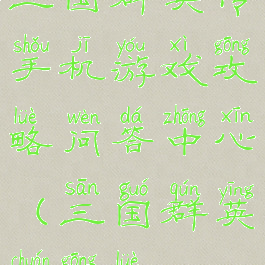 三国群英传
shǒu jī yóu xì gōng
手机游戏攻
lüè wèn dá zhōng xīn
略问答中心
sān guó qún yīng
（三国群英
chuán gōng lüè